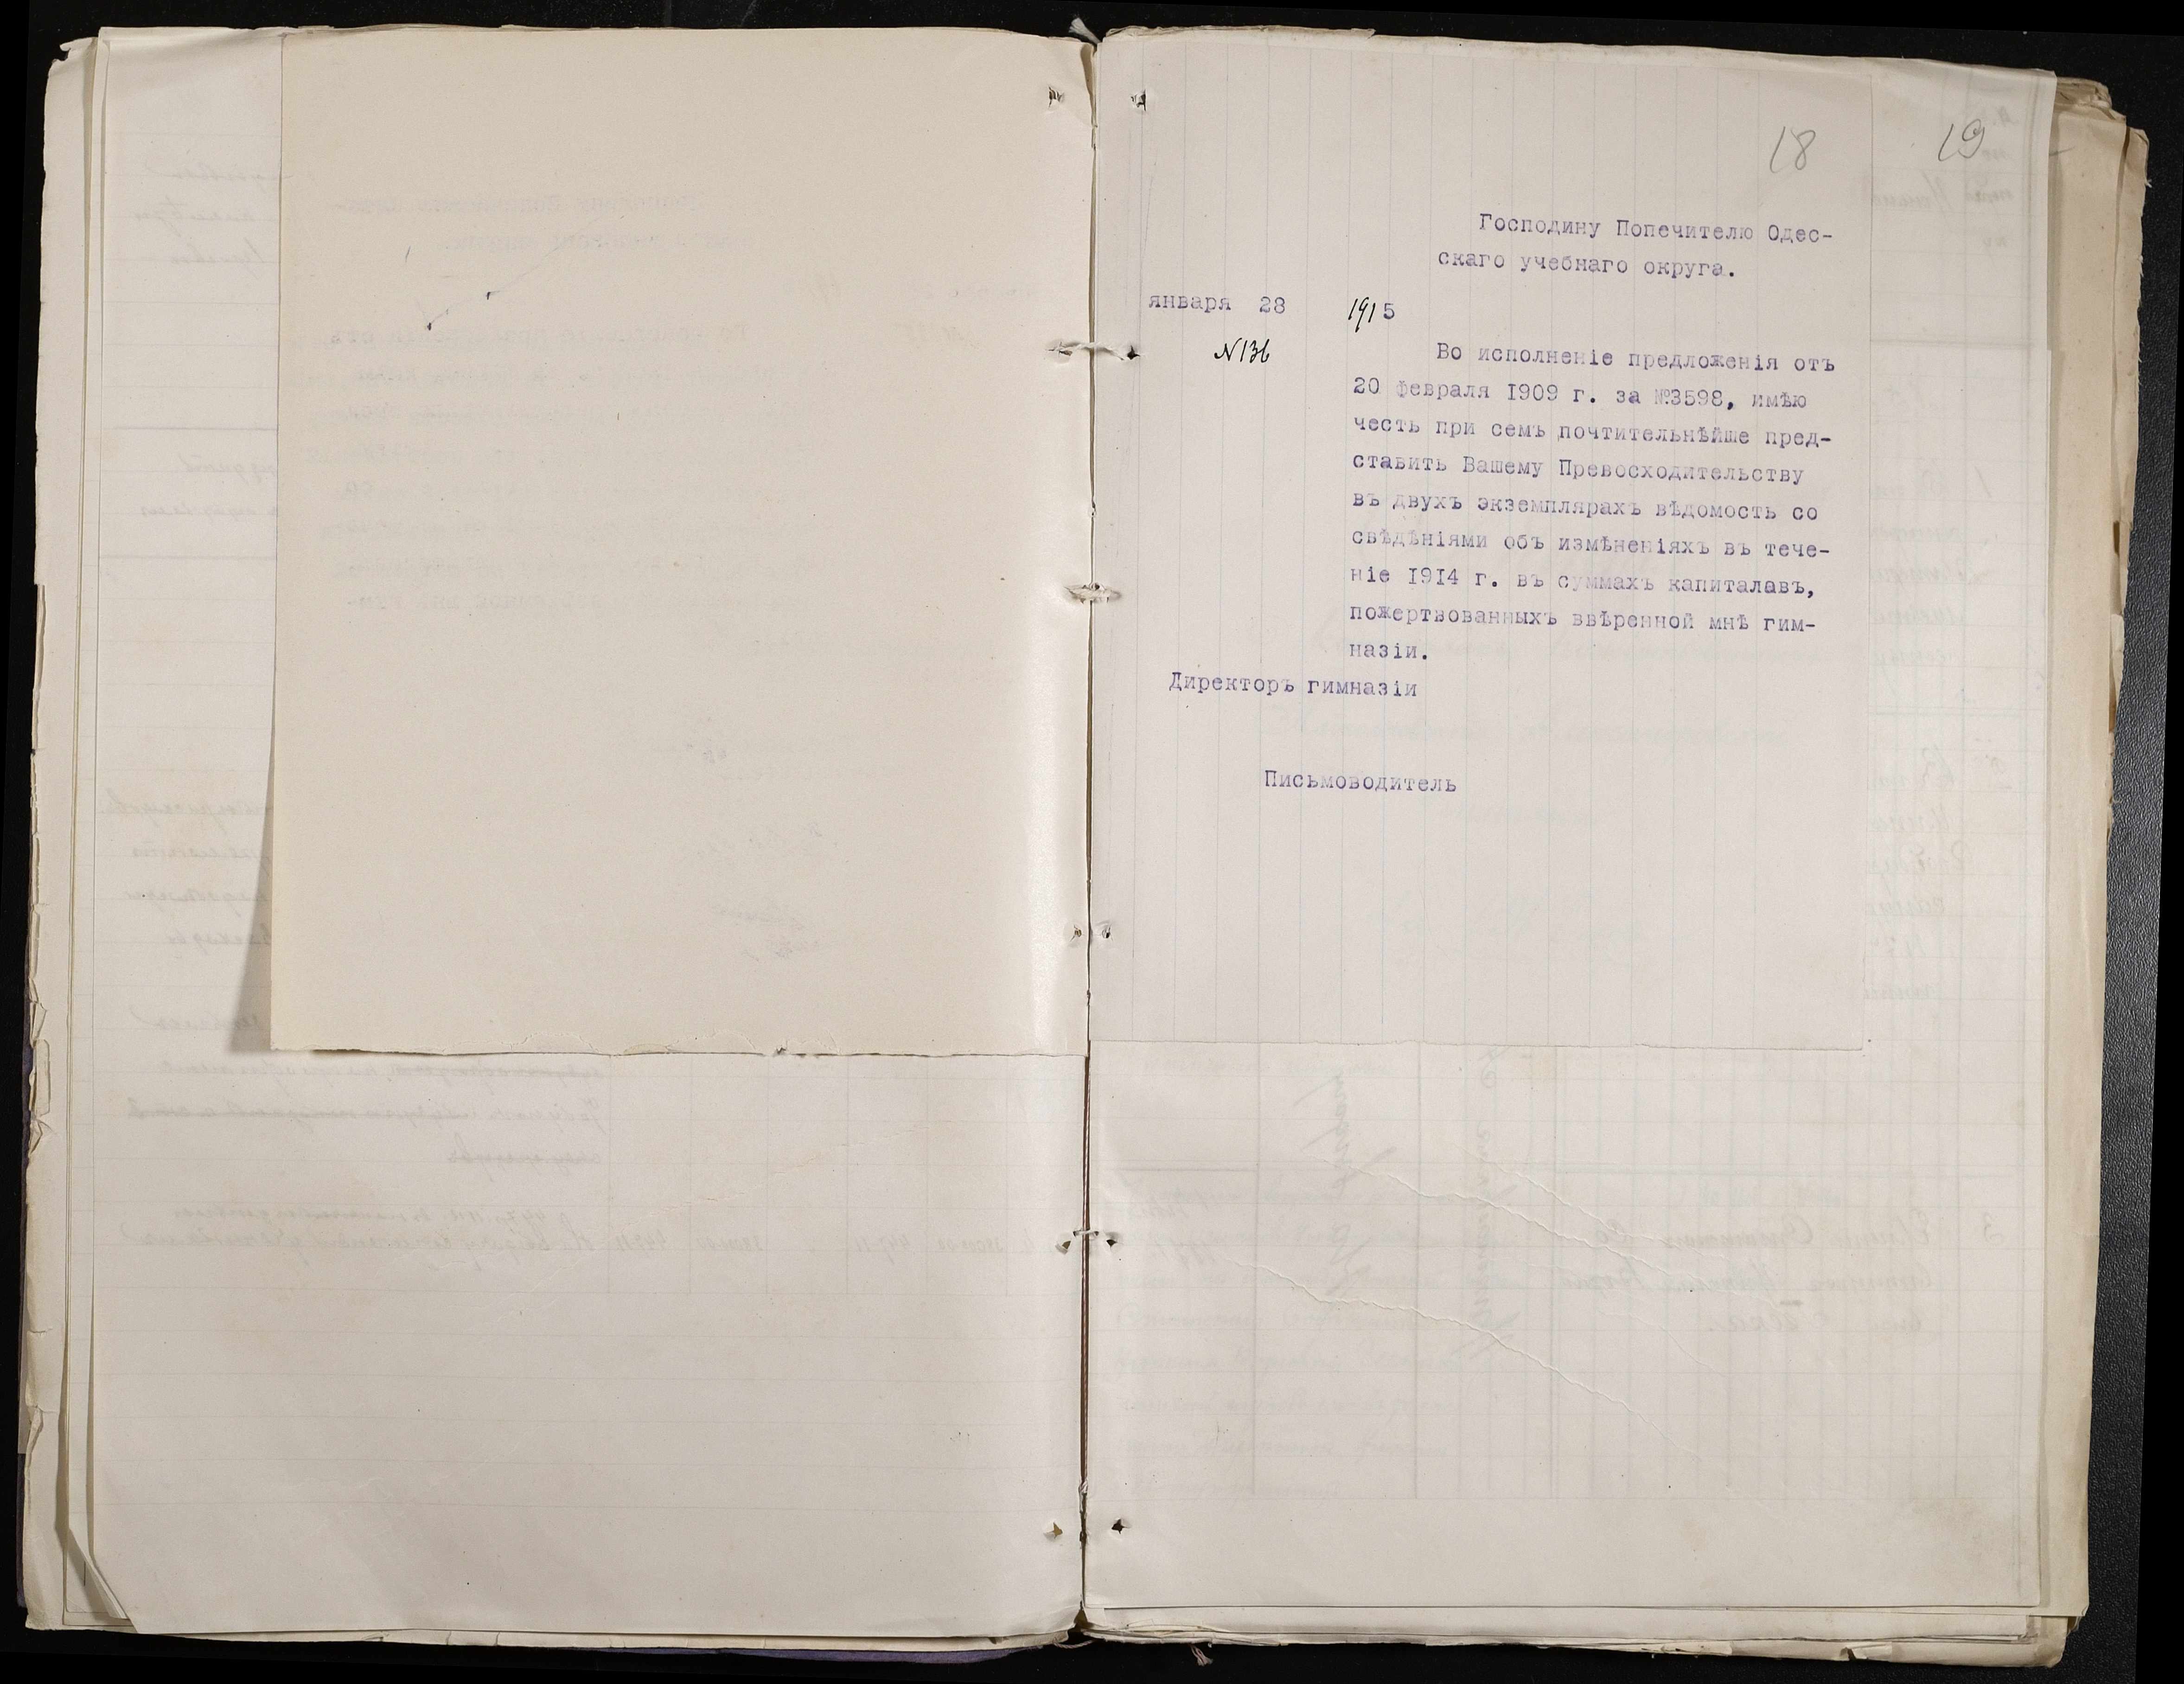 18 19
Господину Попечителю Одес-
скаго учебнаго округа.
января 28 1915
N136
Во исполненіе предложенія отъ
20 февраля 1909 г. за №3598, имѣю
честь при семъ почтительнѣйше пред-
ставить Вашему Превосходительству
въ двухъ экземплярахъ вѣдомость со
свѣдѣніями объ измѣненіяхъ въ тече-
ніе 1914 г. въ суммахъ капиталавъ,
пожертвованныхъ ввѣренной мнѣ гим-
назіи.
Директоръ гимназіи
Письмоводитель